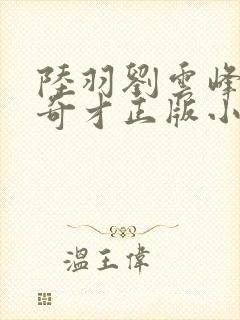 陸羽劉雲峰
奇才正版小
溫王偉